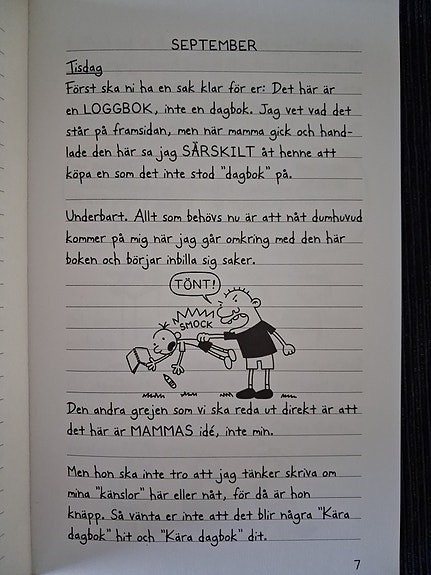 SEPTEMBER
Tisdag
Först ska ni ha en sak klar för er: Det här är
en LOGGBOK, inte en dagbok. Jag vet vad det
står på framsidan, men när mamma gick och hand-
lade den här sa jag SÄRSKILT åt henne att
köpa en som det inte stod "dagbok" på.
Underbart. Allt som behövs nu är att nåt dumhuvud
kommer på mig när jag går omkring med den här
boken och börjar inbilla sig saker.
TÖNT!
SMOCK
Den andra grejen som vi ska reda ut direkt är att
det här är MAMMAS idé, inte min.
Men hon ska inte tro att jag tänker skriva om
mina "känslor" här eller nåt, för då är hon
knäpp. Så vänta er inte att det blir några "Kära
dagbok" hit och "Kära dagbok" dit.
7